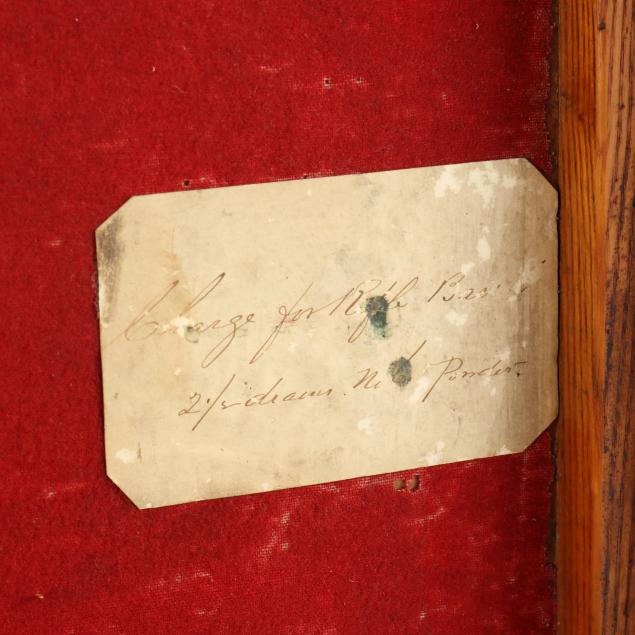 Charge for Rifle
2 1/2 drams No 6 Powder.